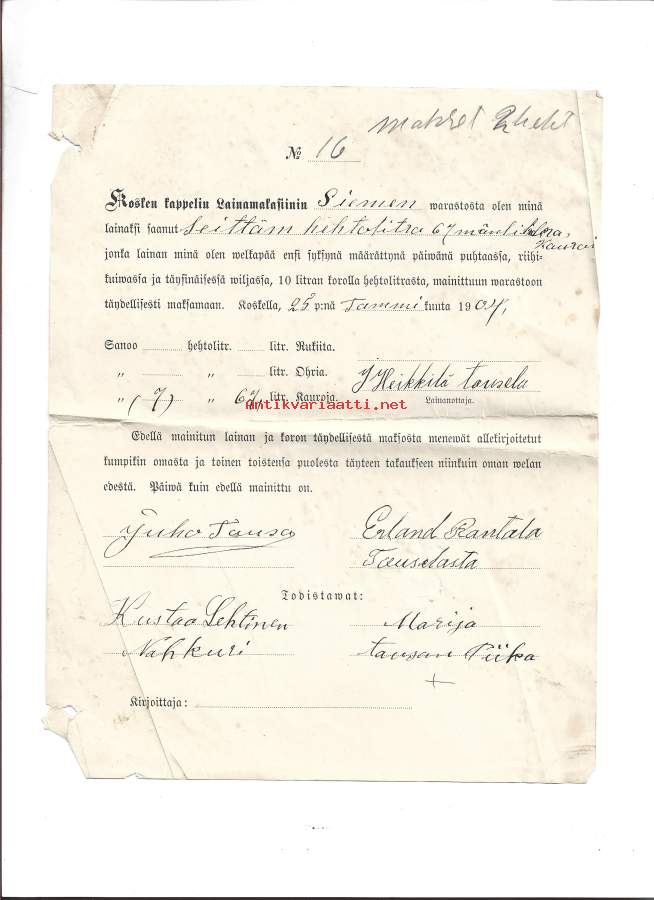 Makset 2 heht
№ 16
Kosken kappelin Lainamakasiinin Siemen warastosta olen minä
lainaksi saanut Seittäm hehtolitra 67 Kauroi
jonka lainan minä olen welkapää ensi syksynä määrättynä päiwänä puhtaassa, riihi-
kuiwassa ja täysinäisessä wiljassa, 10 litran korolla hehtolitrasta, mainittuun warastoon
täydellisesti maksamaan. Koskella, 25 p:nä Tammi kuuta 1904,
Sanoo hehtolitr. litr. Rukiita.
" " litr. Ohria.
" (7) " 67 litr. Kauroja.
J Heikkilä tousela
Lainanottaja.
Antikvariaatti.net
Edellä mainitun lainan ja koron täydellisestä maksosta menewät allekirjoitetut
kumpikin omasta ja toinen toistensa puolesta täyteen takaukseen niinkuin oman welan
edestä. Päiwä kuin edellä mainittu on.
Juho Tousa Erland Rantala
Touselasta
Todistawat:
Kustaa Lehtinen Marija
Nahkuri tausan Piika
+
Kirjoittaja: